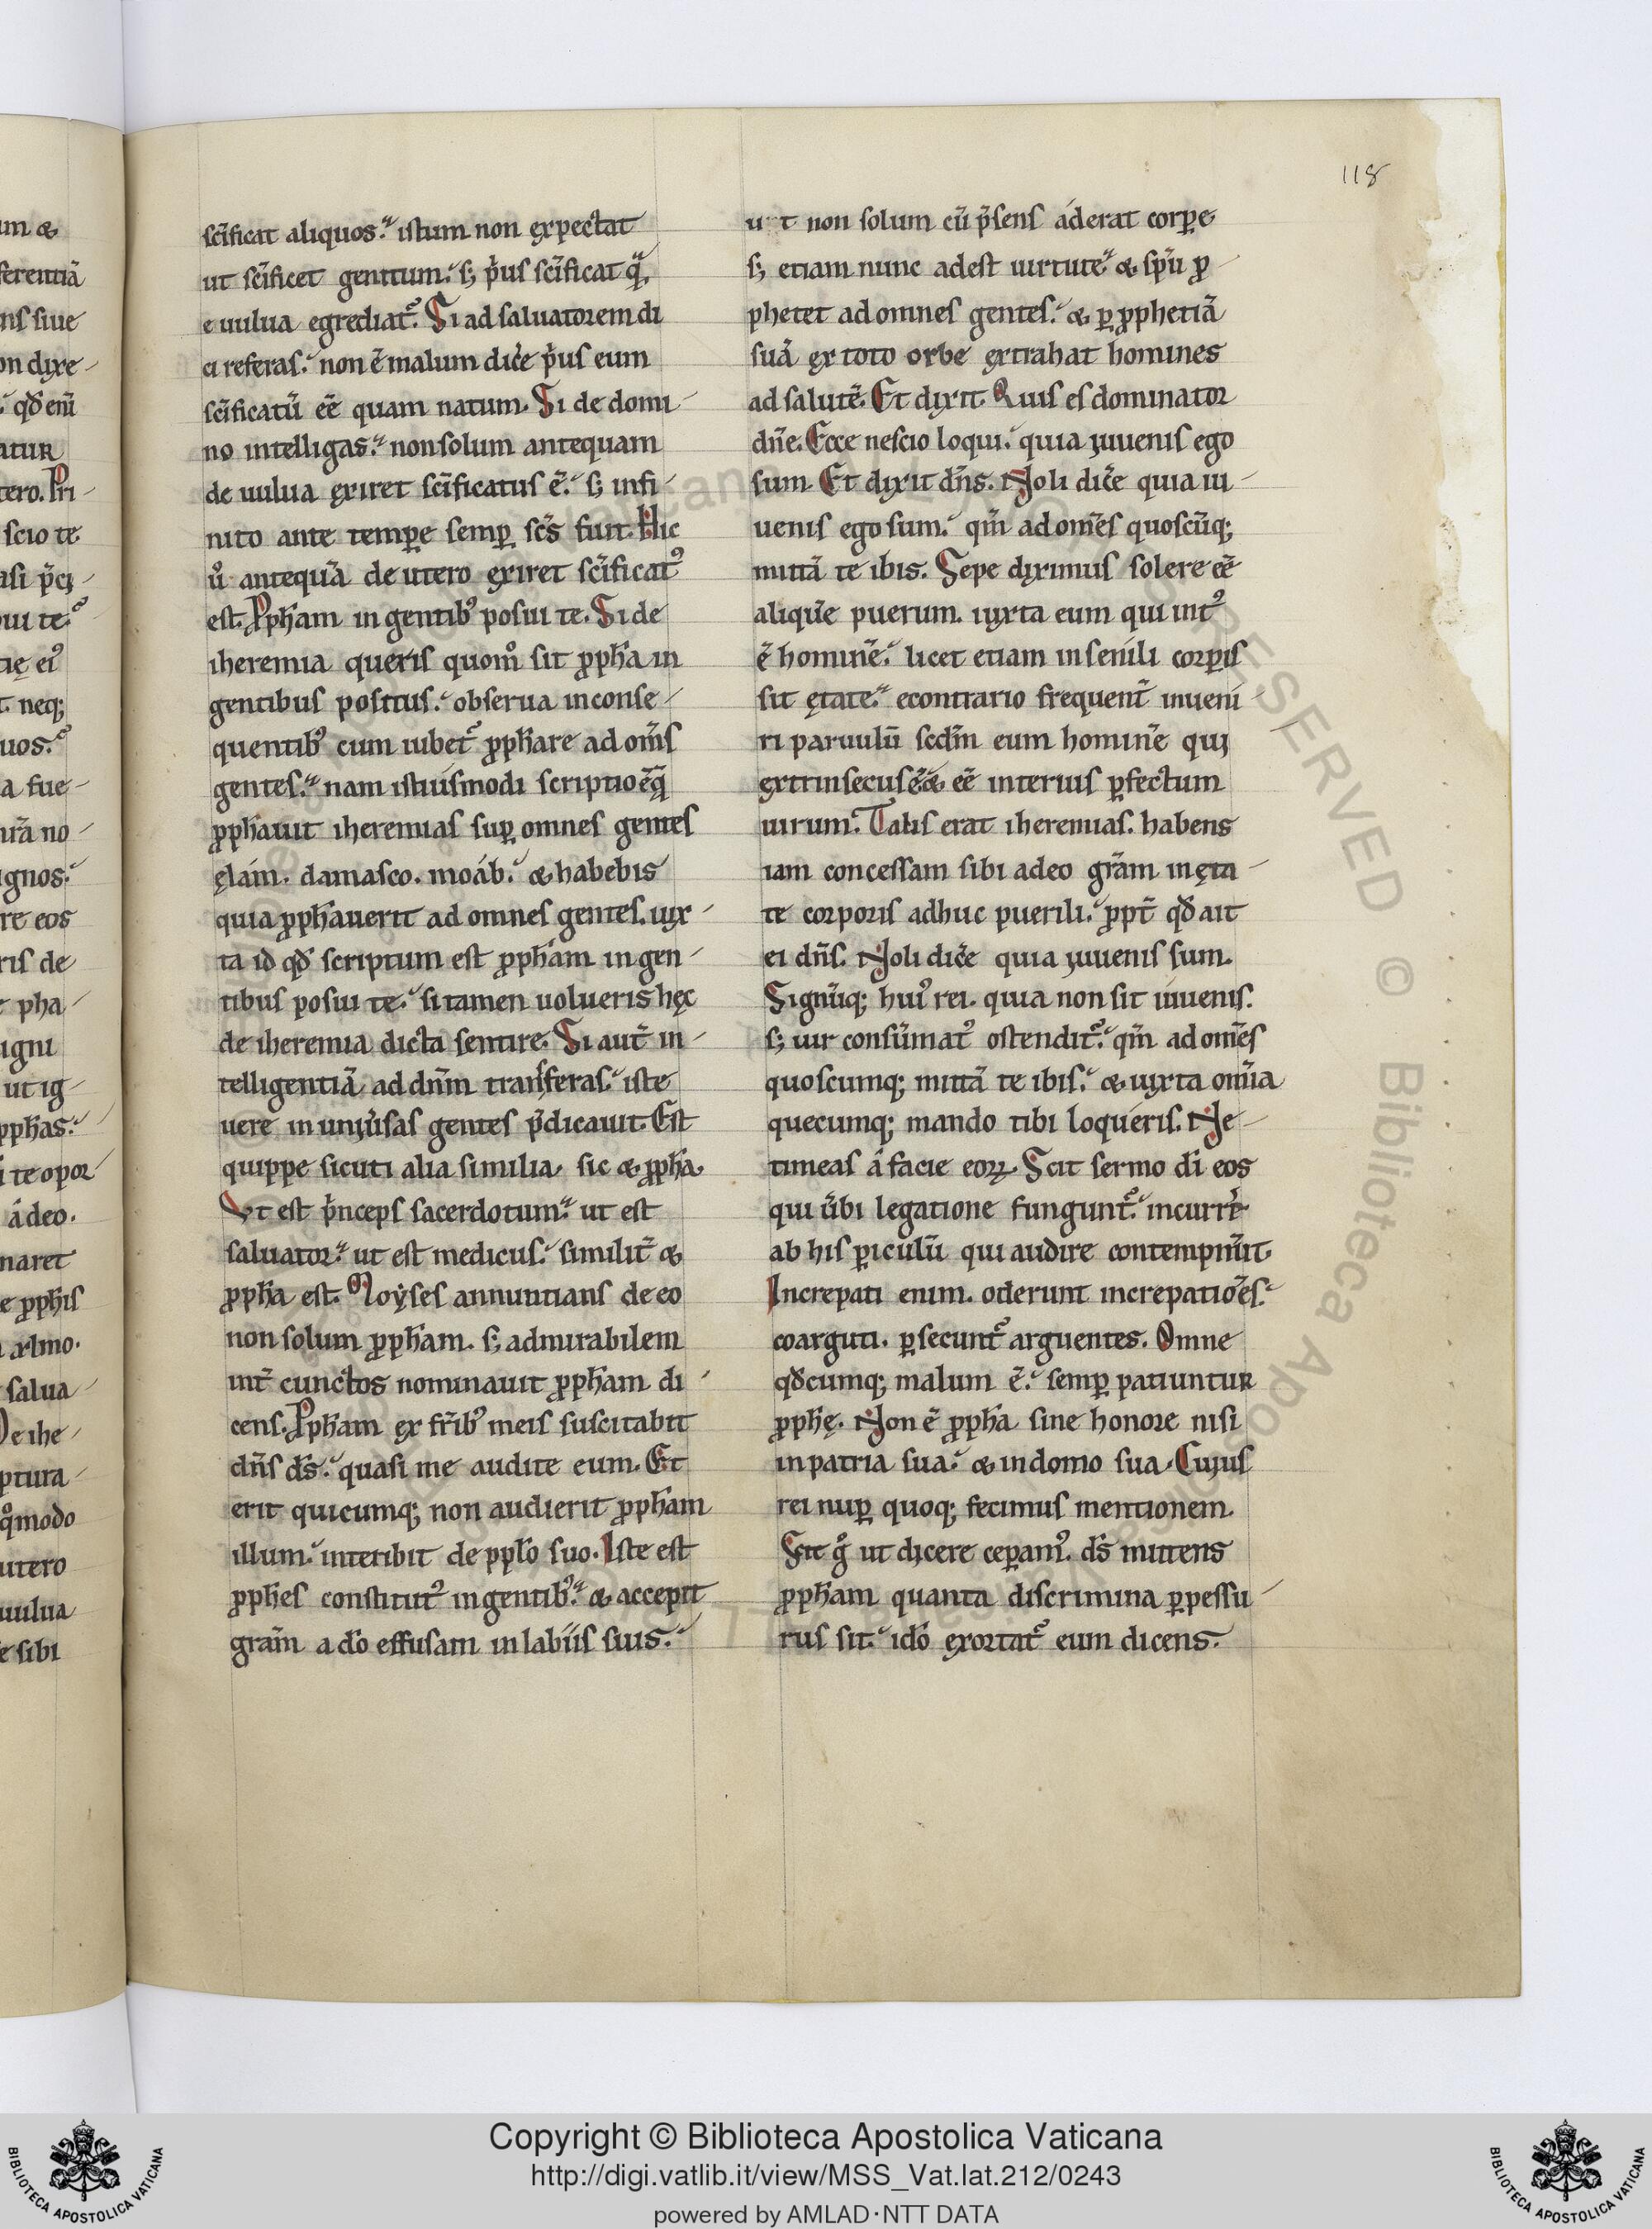 118
scĩficat aliquos. istum non expectat
ut scĩficet genitum. s; p̃us scĩficat q̃
e uulua egrediat᷒. Si ad saluatorem di
ci referas. non ẽ malum dic̃e p̃us eum
scĩficatũ eẽ quam natum. Si de domi
no intelligas. non solum antequam
de uulua exiret scĩficatus ẽ. s; infi
nito ante tempore semꝑ scs̃ fuit. Hic
ũ antequã de utero exiret scĩficat᷒
est. Ꝓpħam in gentib᷒ posui te. Si de
iheremia queris quom̊ sit ꝓpħa in
gentibus positus. obserua in conse
quentib᷒ cum iubet᷒ ꝓpħare ad om̃s
gentes. nam istiusmodi scriptio ẽ q̃
ꝓpħauit iheremias suꝑ omnes gentes
ęlám. damasco. moáb. & habebis
quia ꝓpħauerit ad omnes gentes. iux
ta id qđ scriptum est ꝓpħam in gen
tibus posui te. si tamen uolueris hęc
de iheremia dicta sentire. Si aut̃ in
telligentiã ad dnm̃ transferas. iste
uere in uniũsas gentes p̃dicauit. Est
quippe sicuti alia similia. sic & ꝓpħa.
Vt est p̃nceps sacerdotum. ut est
saluator. ut est medicus. similit̃ &
ꝓpħa est. Moyses annuntians de eo
non solum ꝓpħam. s; admirabilem
int̃ cunctos nominauit ꝓpħam di
cens. Ꝓpħam ex fr̃ib᷒ meis suscitabit
dñs ds̃. quasi me audite eum. Et
erit quicumq; non audierit ꝓpħam
illum. interibit de ppło suo. Iste est
ꝓpħes constitut᷒ in gentib᷒. & accepit
gram̃ a do effusam in labiis suis.
u t non solum cũ p̃sens áderat corꝑe
s; etiam nunc adest uirtute. & spũ ꝓ
phetet ad omnes gentes. & ꝑ ꝓphetiã
suã ex toto orbe extrahat homines
ad salutẽ. Et dixit. Quis es dominator
dñe. Ecce nescio loqui. quia iuuenis ego
sum. Et dixit dñs. Noli dic̃e quia iu
uenis ego sum. qm̃ ad omẽs quoscũq;
mittã te ibis. Sepe diximus solere eẽ
aliquẽ puerum. iuxta eum qui int᷒
ẽ hominẽ. licet etiam in senili corꝑis
sit ętate. econtrario frequent̃ inueni
ri paruulũ scdm̃ eum hominẽ qui
extrinsecus ẽ & eẽ interius ꝑfectum
uirum. Talis erat iheremias. habens
iam concessam sibi adeo gram̃ in ęta
te corporis adhuc puerili. ꝓpt̃ qđ ait
ei dñs. Noli dic̃e quia iuuenis sum.
Signũq; hui᷒ rei. quia non sit iuuenis.
s; uir consũmat᷒ ostendit᷒. qm̃ ad omẽs
quoscumq; mittã te ibis. & iuxta om̃ia
quecumq; mando tibi loqueris. Ne
timeas á facie eoꝝ. Scit sermo di eos
qui ũbi legatione fungunt᷒. incurrẽ
ab his ꝑiculũ qui audire contempñit.
Increpati enim. oderunt increpatioẽs.
coarguti. ꝑsecunt᷒ arguentes. Omne
qđcumq; malum ẽ. semꝑ patiuntur
ꝓpħę. Non ẽ ꝓpħa sine honore nisi
in patria sua. & in domo sua. Cuius
rei nuꝑ quoq; fecimus mentionem.
Scit g̊ ut dicere ceꝑam᷒. ds̃ mittens
ꝓpħam quanta discrimina ꝑpessu
rus sit. ido exortat᷒ eum dicens.
Copyright © Biblioteca Apostolica Vaticana
http://digi.vatlib.it/view/MSS_Vat.lat.212/0243
powered by AMLAD·NTT DATA